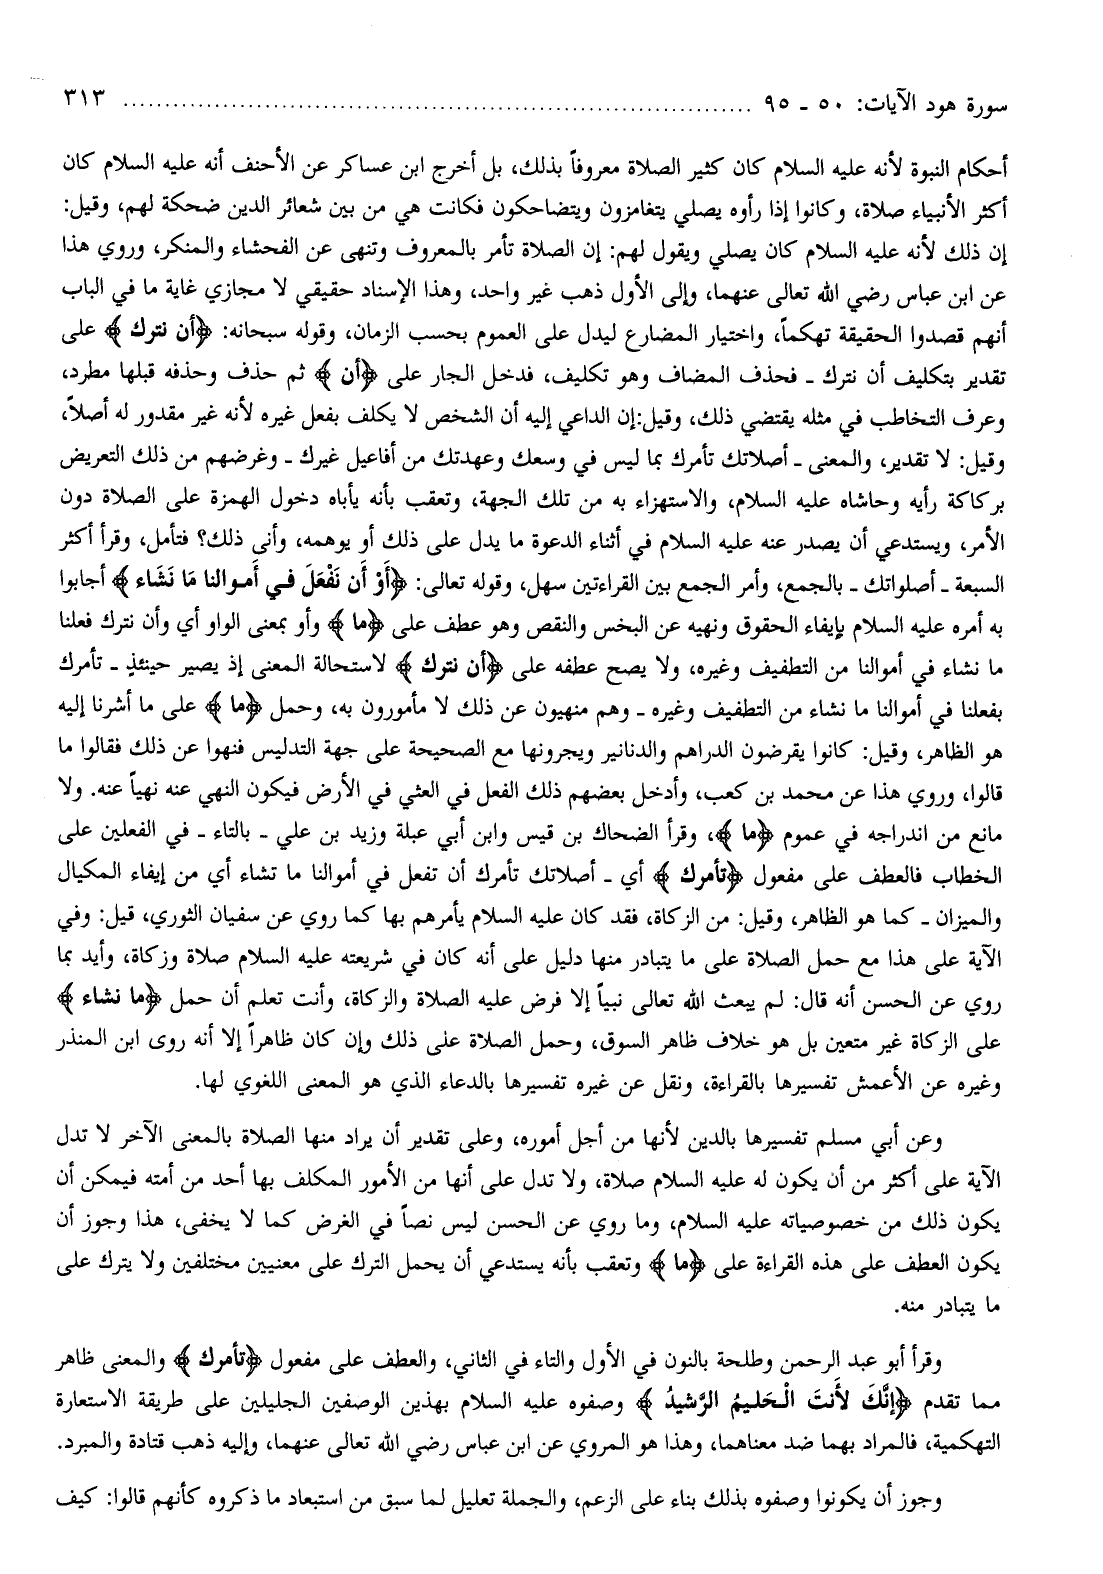 سورة هود الآيات: ٥٠ ـ ٩٥ ........................................................................... ٣١٣
أحكام النبوة لأنه عليه السلام كان كثير الصلاة معروفاً بذلك، بل أخرج ابن عساكر عن الأحنف أنه عليه السلام كان
أكثر الأنبياء صلاة، وكانوا إذا رأوه يصلي يتغامزون ويتضاحكون فكانت هي من بين شعائر الدين ضحكة لهم، وقيل:
إن ذلك لأنه عليه السلام كان يصلي ويقول لهم: إن الصلاة تأمر بالمعروف وتنهى عن الفحشاء والمنكر، وروي هذا
عن ابن عباس رضي الله تعالى عنهما، وإلى الأول ذهب غير واحد، وهذا الإسناد حقيقي لا مجازي غاية ما في الباب
أنهم قصدوا الحقيقة تهكماً، واختيار المضارع ليدل على العموم بحسب الزمان، وقوله سبحانه: ﴿أن نترك﴾ على
تقدير بتكليف أن نترك ـ فحذف المضاف وهو تكليف، فدخل الجار على ﴿أن﴾ ثم حذف وحذفه قبلها مطرد،
وعرف التخاطب في مثله يقتضي ذلك، وقيل:إن الداعي إليه أن الشخص لا يكلف بفعل غيره لأنه غير مقدور له أصلاً،
وقيل: لا تقدير، والمعنى ـ أصلاتك تأمرك بما ليس في وسعك وعهدتك من أفاعيل غيرك ـ وغرضهم من ذلك التعريض
بركاكة رأيه وحاشاه عليه السلام، والاستهزاء به من تلك الجهة، وتعقب بأنه يأباه دخول الهمزة على الصلاة دون
الأمر، ويستدعي أن يصدر عنه عليه السلام في أثناء الدعوة ما يدل على ذلك أو يوهمه، وأنى ذلك؟ فتأمل، وقرأ أكثر
السبعة ـ أصلواتك ـ بالجمع، وأمر الجمع بين القراءتين سهل، وقوله تعالى: ﴿أَوْ أَن نَفْعَلَ في أَموالنا مَا نَشَاء﴾ أجابوا
به أمره عليه السلام بإيفاء الحقوق ونهيه عن البخس والنقص وهو عطف على ﴿ما﴾ وأو بمعنى الواو أي وأن نترك فعلنا
ما نشاء في أموالنا من التطفيف وغيره، ولا يصح عطفه على ﴿أن نترك﴾ لاستحالة المعنى إذ يصير حينئذٍ ـ تأمرك
بفعلنا في أموالنا ما نشاء من التطفيف وغيره ـ وهم منهيون عن ذلك لا مأمورون به، وحمل ﴿ما﴾ على ما أشرنا إليه
هو الظاهر، وقيل: كانوا يقرضون الدراهم والدنانير ويجرونها مع الصحيحة على جهة التدليس فنهوا عن ذلك فقالوا ما
قالوا، وروي هذا عن محمد بن كعب، وأدخل بعضهم ذلك الفعل في العثي في الأرض فيكون النهي عنه نهياً عنه. ولا
مانع من اندراجه في عموم ﴿ما﴾، وقرأ الضحاك بن قيس وابن أبي عبلة وزيد بن علي ـ بالتاء ـ في الفعلين على
الخطاب فالعطف على مفعول ﴿تأمرك﴾ أي ـ أصلاتك تأمرك أن تفعل في أموالنا ما تشاء أي من إيفاء المكيال
والميزان ـ كما هو الظاهر، وقيل: من الزكاة، فقد كان عليه السلام يأمرهم بها كما روي عن سفيان الثوري، قيل: وفي
الآية على هذا مع حمل الصلاة على ما يتبادر منها دليل على أنه كان في شريعته عليه السلام صلاة وزكاة، وأيد بما
روي عن الحسن أنه قال: لم يبعث الله تعالى نبياً إلا فرض عليه الصلاة والزكاة، وأنت تعلم أن حمل ﴿ما نشاء﴾
على الزكاة غير متعين بل هو خلاف ظاهر السوق، وحمل الصلاة على ذلك وإن كان ظاهراً إلا أنه روى ابن المنذر
وغيره عن الأعمش تفسيرها بالقراءة، ونقل عن غيره تفسيرها بالدعاء الذي هو المعنى اللغوي لها.
وعن أبي مسلم تفسيرها بالدين لأنها من أجل أموره، وعلى تقدير أن يراد منها الصلاة بالمعنى الآخر لا تدل
الآية على أكثر من أن يكون له عليه السلام صلاة، ولا تدل على أنها من الأمور المكلف بها أحد من أمته فيمكن أن
يكون ذلك من خصوصياته عليه السلام، وما روي عن الحسن ليس نصاً في الغرض كما لا يخفى، هذا وجوز أن
يكون العطف على هذه القراءة على ﴿ما﴾ وتعقب بأنه يستدعي أن يحمل الترك على معنيين مختلفين ولا يترك على
ما يتبادر منه.
وقرأ أبو عبد الرحمن وطلحة بالنون في الأول والتاء في الثاني، والعطف على مفعول ﴿تأمرك﴾ والمعنى ظاهر
مما تقدم ﴿إنَّكَ لأَنتَ الْحَليمُ الرَّشيدُ﴾ وصفوه عليه السلام بهذين الوصفين الجليلين على طريقة الاستعارة
التهكمية، فالمراد بهما ضد معناهما، وهذا هو المروي عن ابن عباس رضي الله تعالى عنهما، وإليه ذهب قتادة والمبرد.
وجوز أن يكونوا وصفوه بذلك بناء على الزعم، والجملة تعليل لما سبق من استبعاد ما ذكروه كأنهم قالوا: كيف